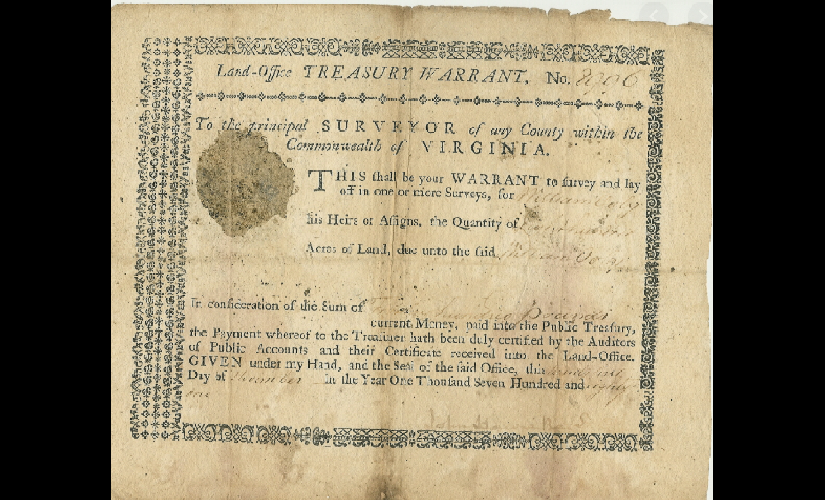 Land-Office TREASURY WARRANT, No.
To the principal SURVEYOR of any County within the
Commonwealth of VIRGINIA.
THIS shall be your WARRANT to survey and lay
off in one or more Surveys, for William
his Heirs or Assigns, the Quantity of
Acres of Land, due unto the said William
In consideration of the Sum of Pounds
current Money, paid into the Public Treasury,
the Payment whereof to the Treasurer hath been duly certified by the Auditors
of Public Accounts and their Certificate received into the Land-Office.
GIVEN under my Hand, and the Seal of the said Office, this
Day of December in the Year One Thousand Seven Hundred and eighty
one